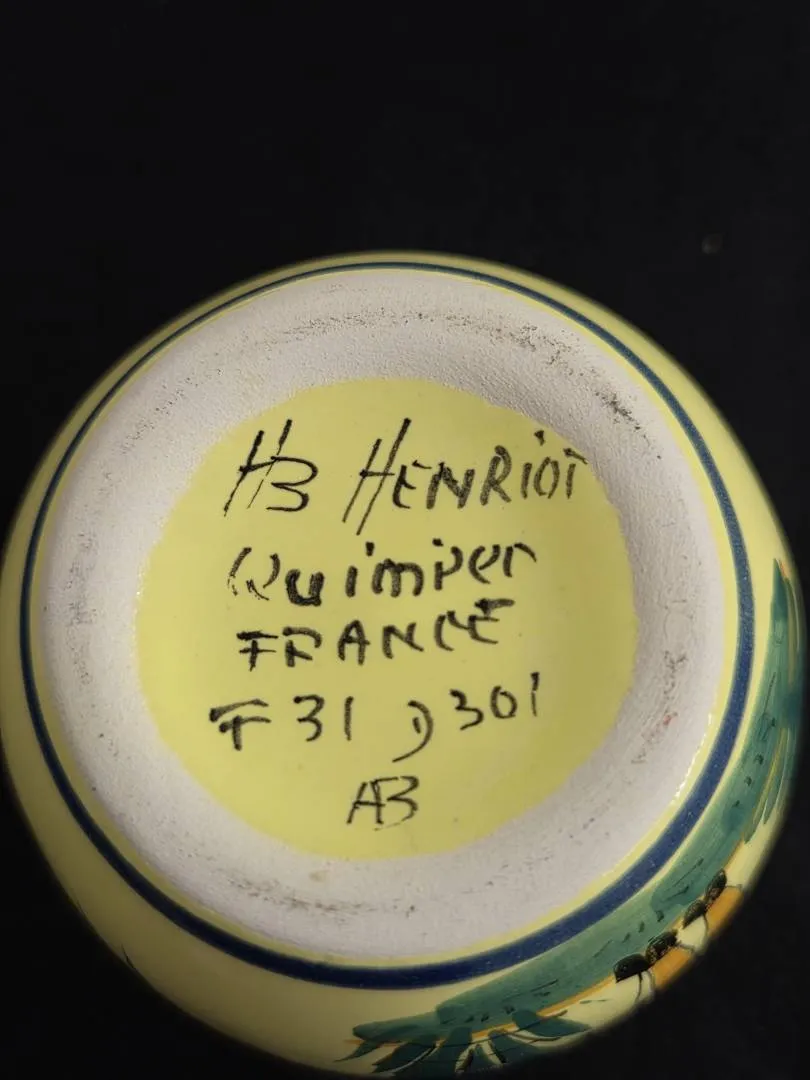 HB HENRiOT
Quimper
FRANCE
F 31 D 301
AB